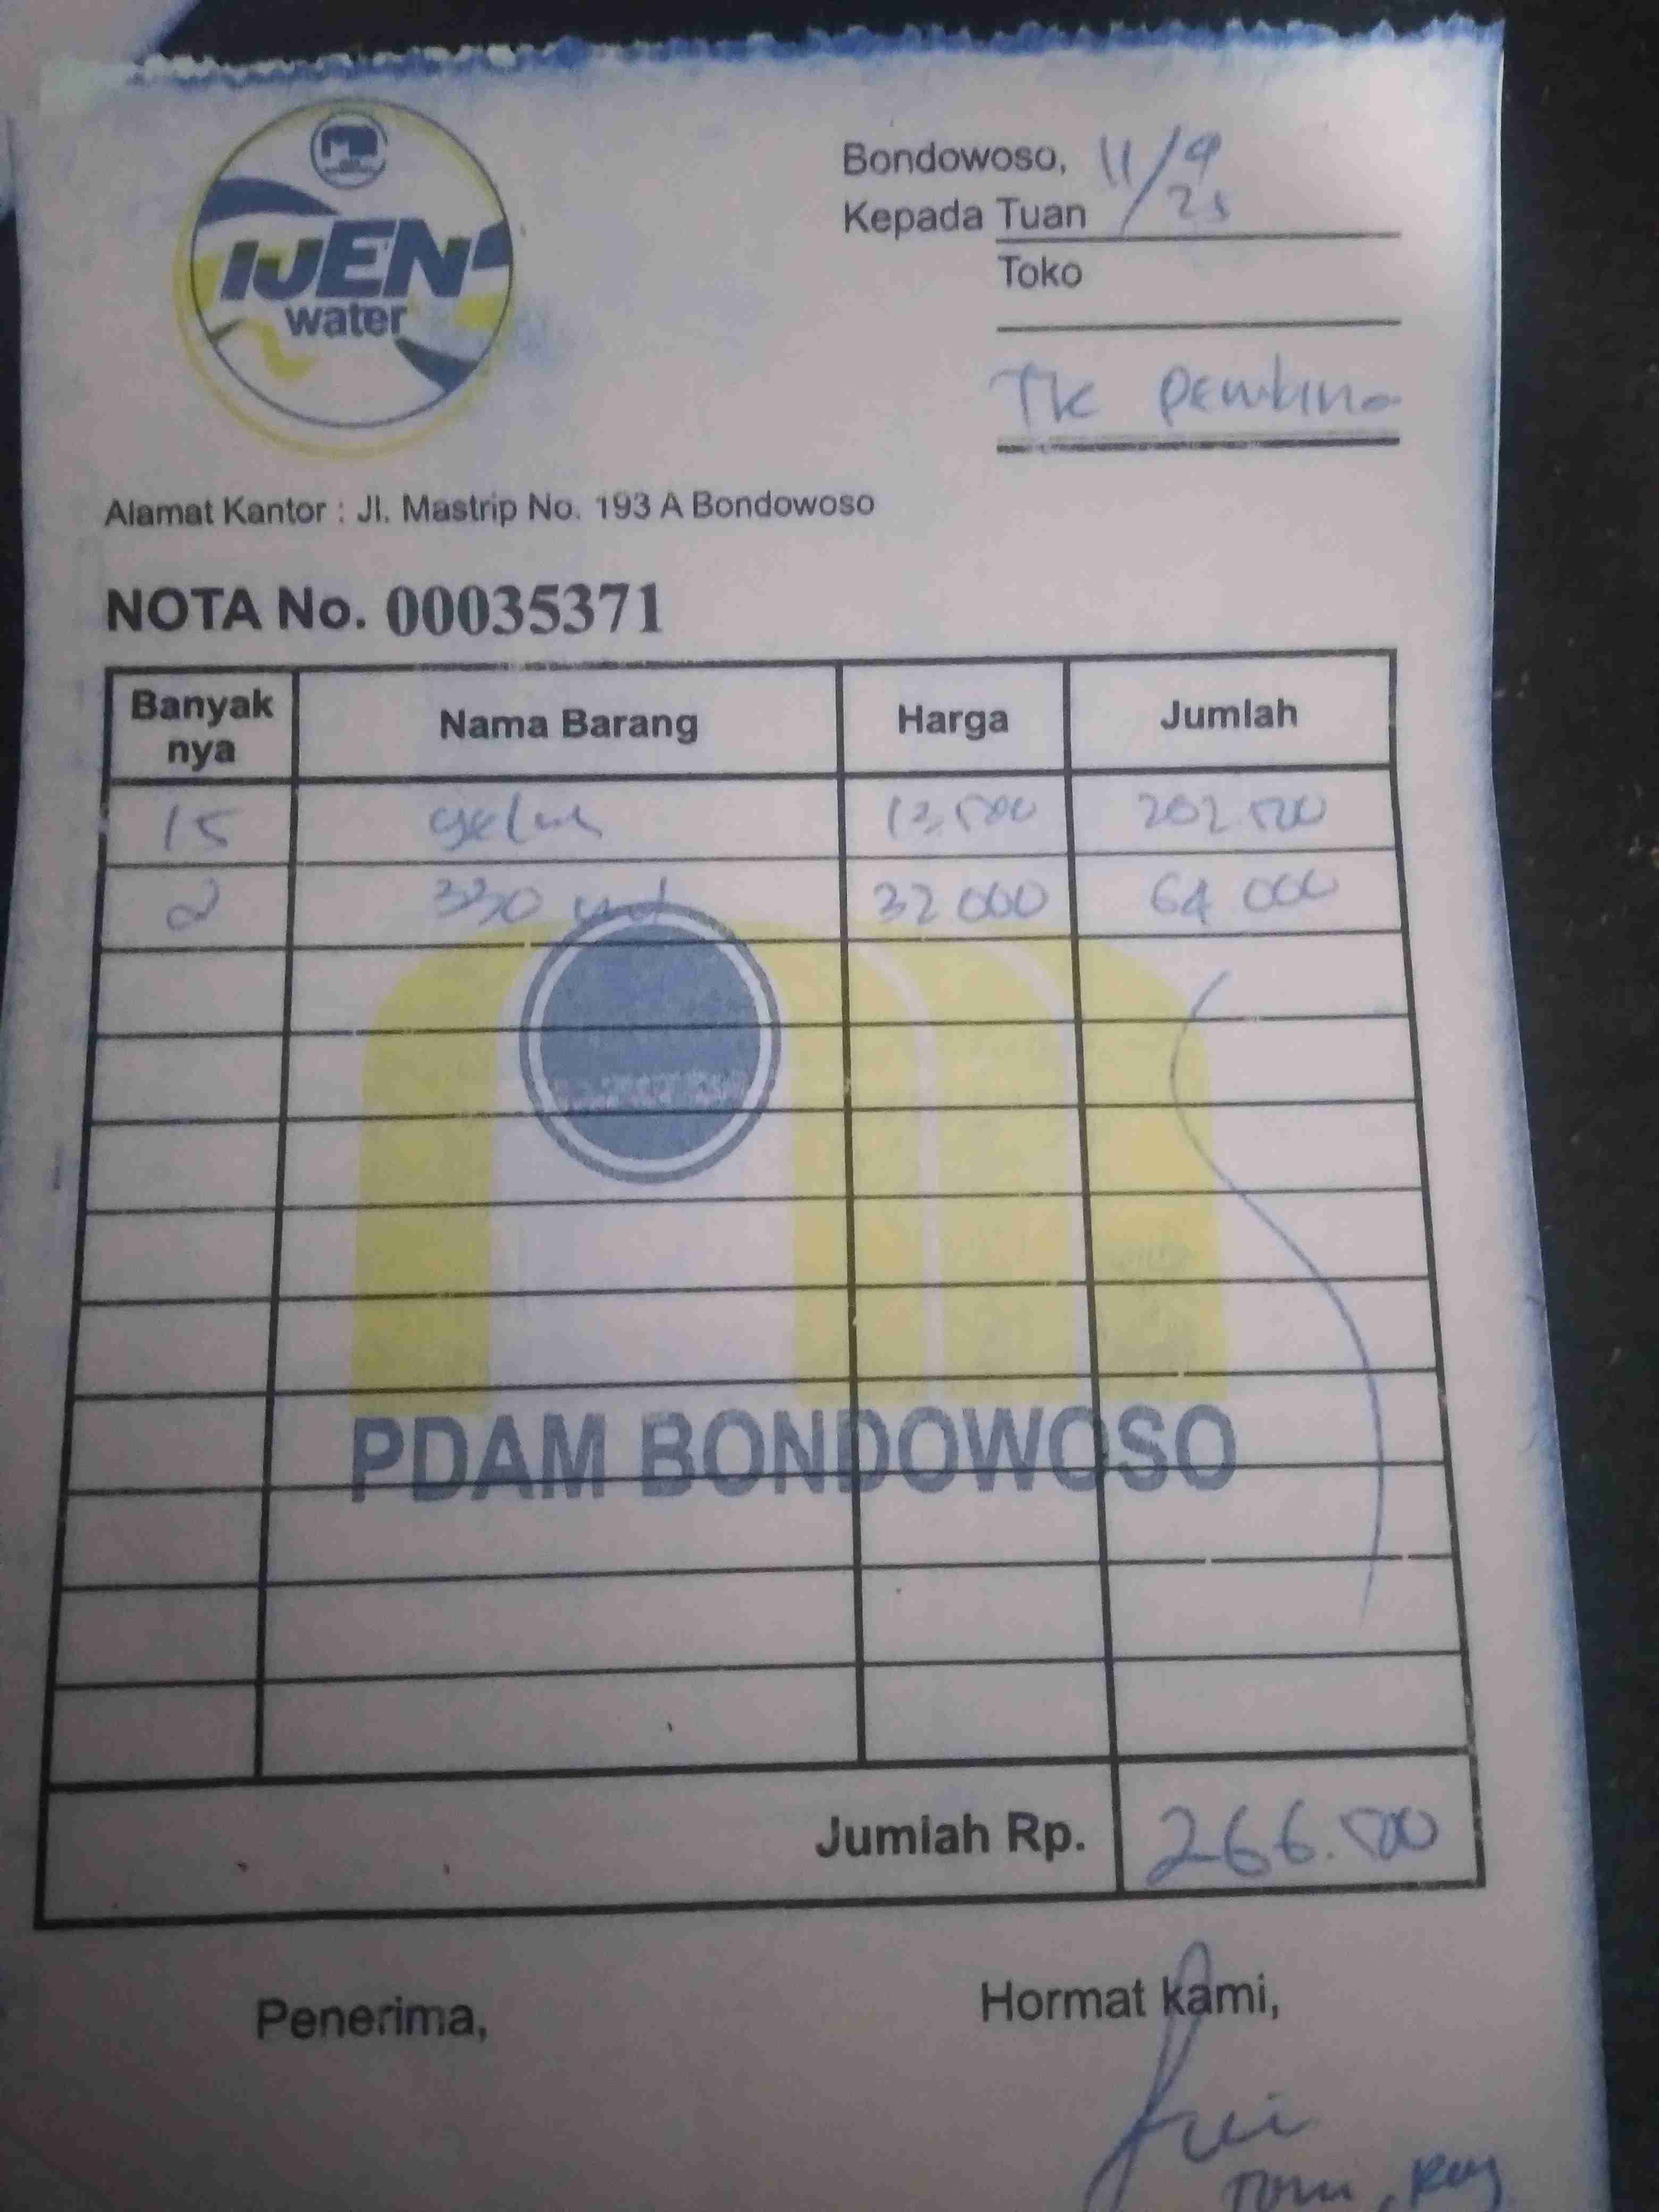 IJEN
water
Bondowoso, 11/9
Kepada Tuan / 25
Toko
TK Pembina
Alamat Kantor : Jl. Mastrip No. 193 A Bondowoso
NOTA No. 00035371
Banyak nya Nama Barang Harga Jumlah
15 gelas 13.500 202.500
2 330 ml 32 000 64 000
PDAM BONDOWOSO
Jumlah Rp. 266.500
Penerima, Hormat kami,